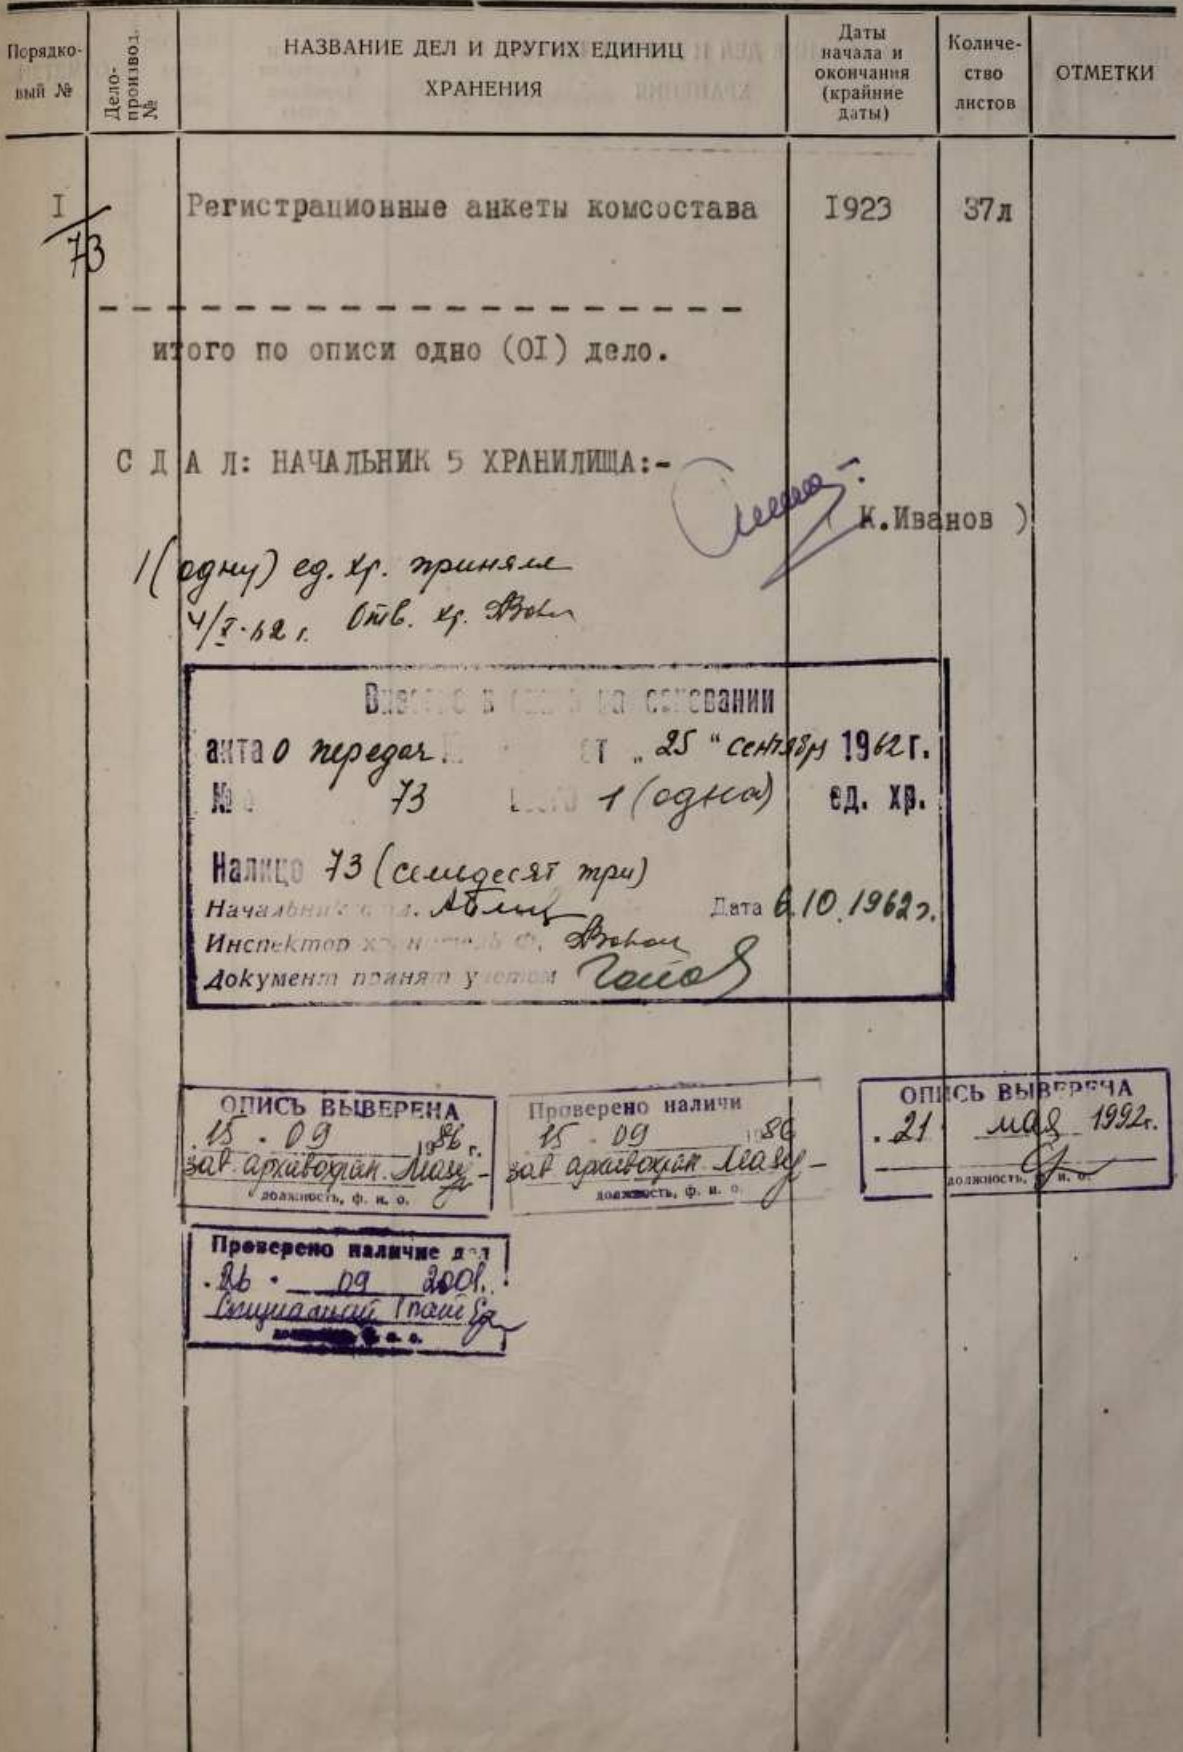 Порядко-
вый №
Дело-
производ.
№
НАЗВАНИЕ ДЕЛ И ДРУГИХ ЕДИНИЦ
ХРАНЕНИЯ
Даты
начала и
окончания
(крайние
даты)
Количе-
ство
листов
ОТМЕТКИ
I
73
Регистрационные анкеты комсостава
I923
37л
итого по описи одно (OI) дело.
С Д А Л: НАЧАЛЬНИК 5 ХРАНИЛИЩА:-
( К.Иванов )
1 (одну) ед. хр. принял
4/X-62 г. Отв. хр.
основании
акта о передач „ 25 " сентября 1962 г.
№ 73 1 (одна) ед. хр.
Налицо 73 (семьдесят три)
Начальник Дата 6.10.1962г.
Инспектор
Документ принят учетом
ОПИСЬ ВЫВЕРЕНА
15 . 09 1986 г.
зав. архивохран.
должность, ф. и. о.
Проверено наличи
15 . 09 1986
зав архивохран.
должность, ф. и. о.
ОПИСЬ ВЫВЕРЕНА
. 21 мая 1992г.
должность, ф. и. о.
Проверено наличие дел
. 26 . 09 2001.